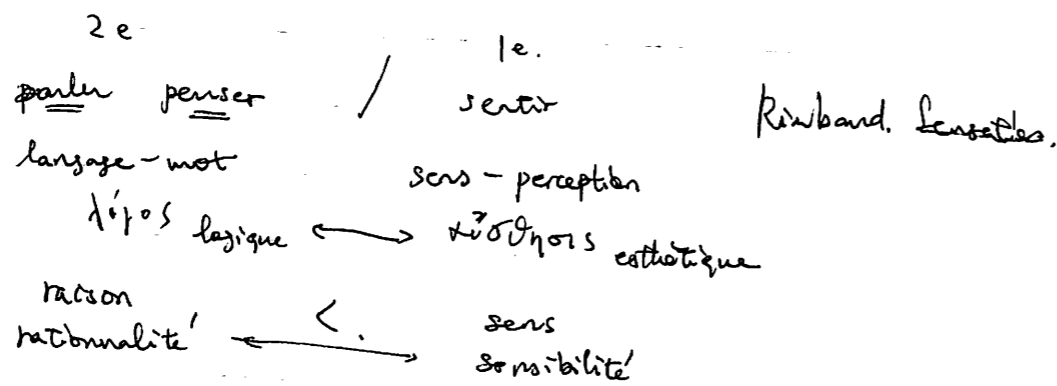 2e 1e.
parler penser / sentir
Rimbaud. Sensation.
langage - mot
sens - perception
λόγος logique ⟷ αἴσθησις esthétique
raison < . sens
rationnalité ⟷ sensibilité